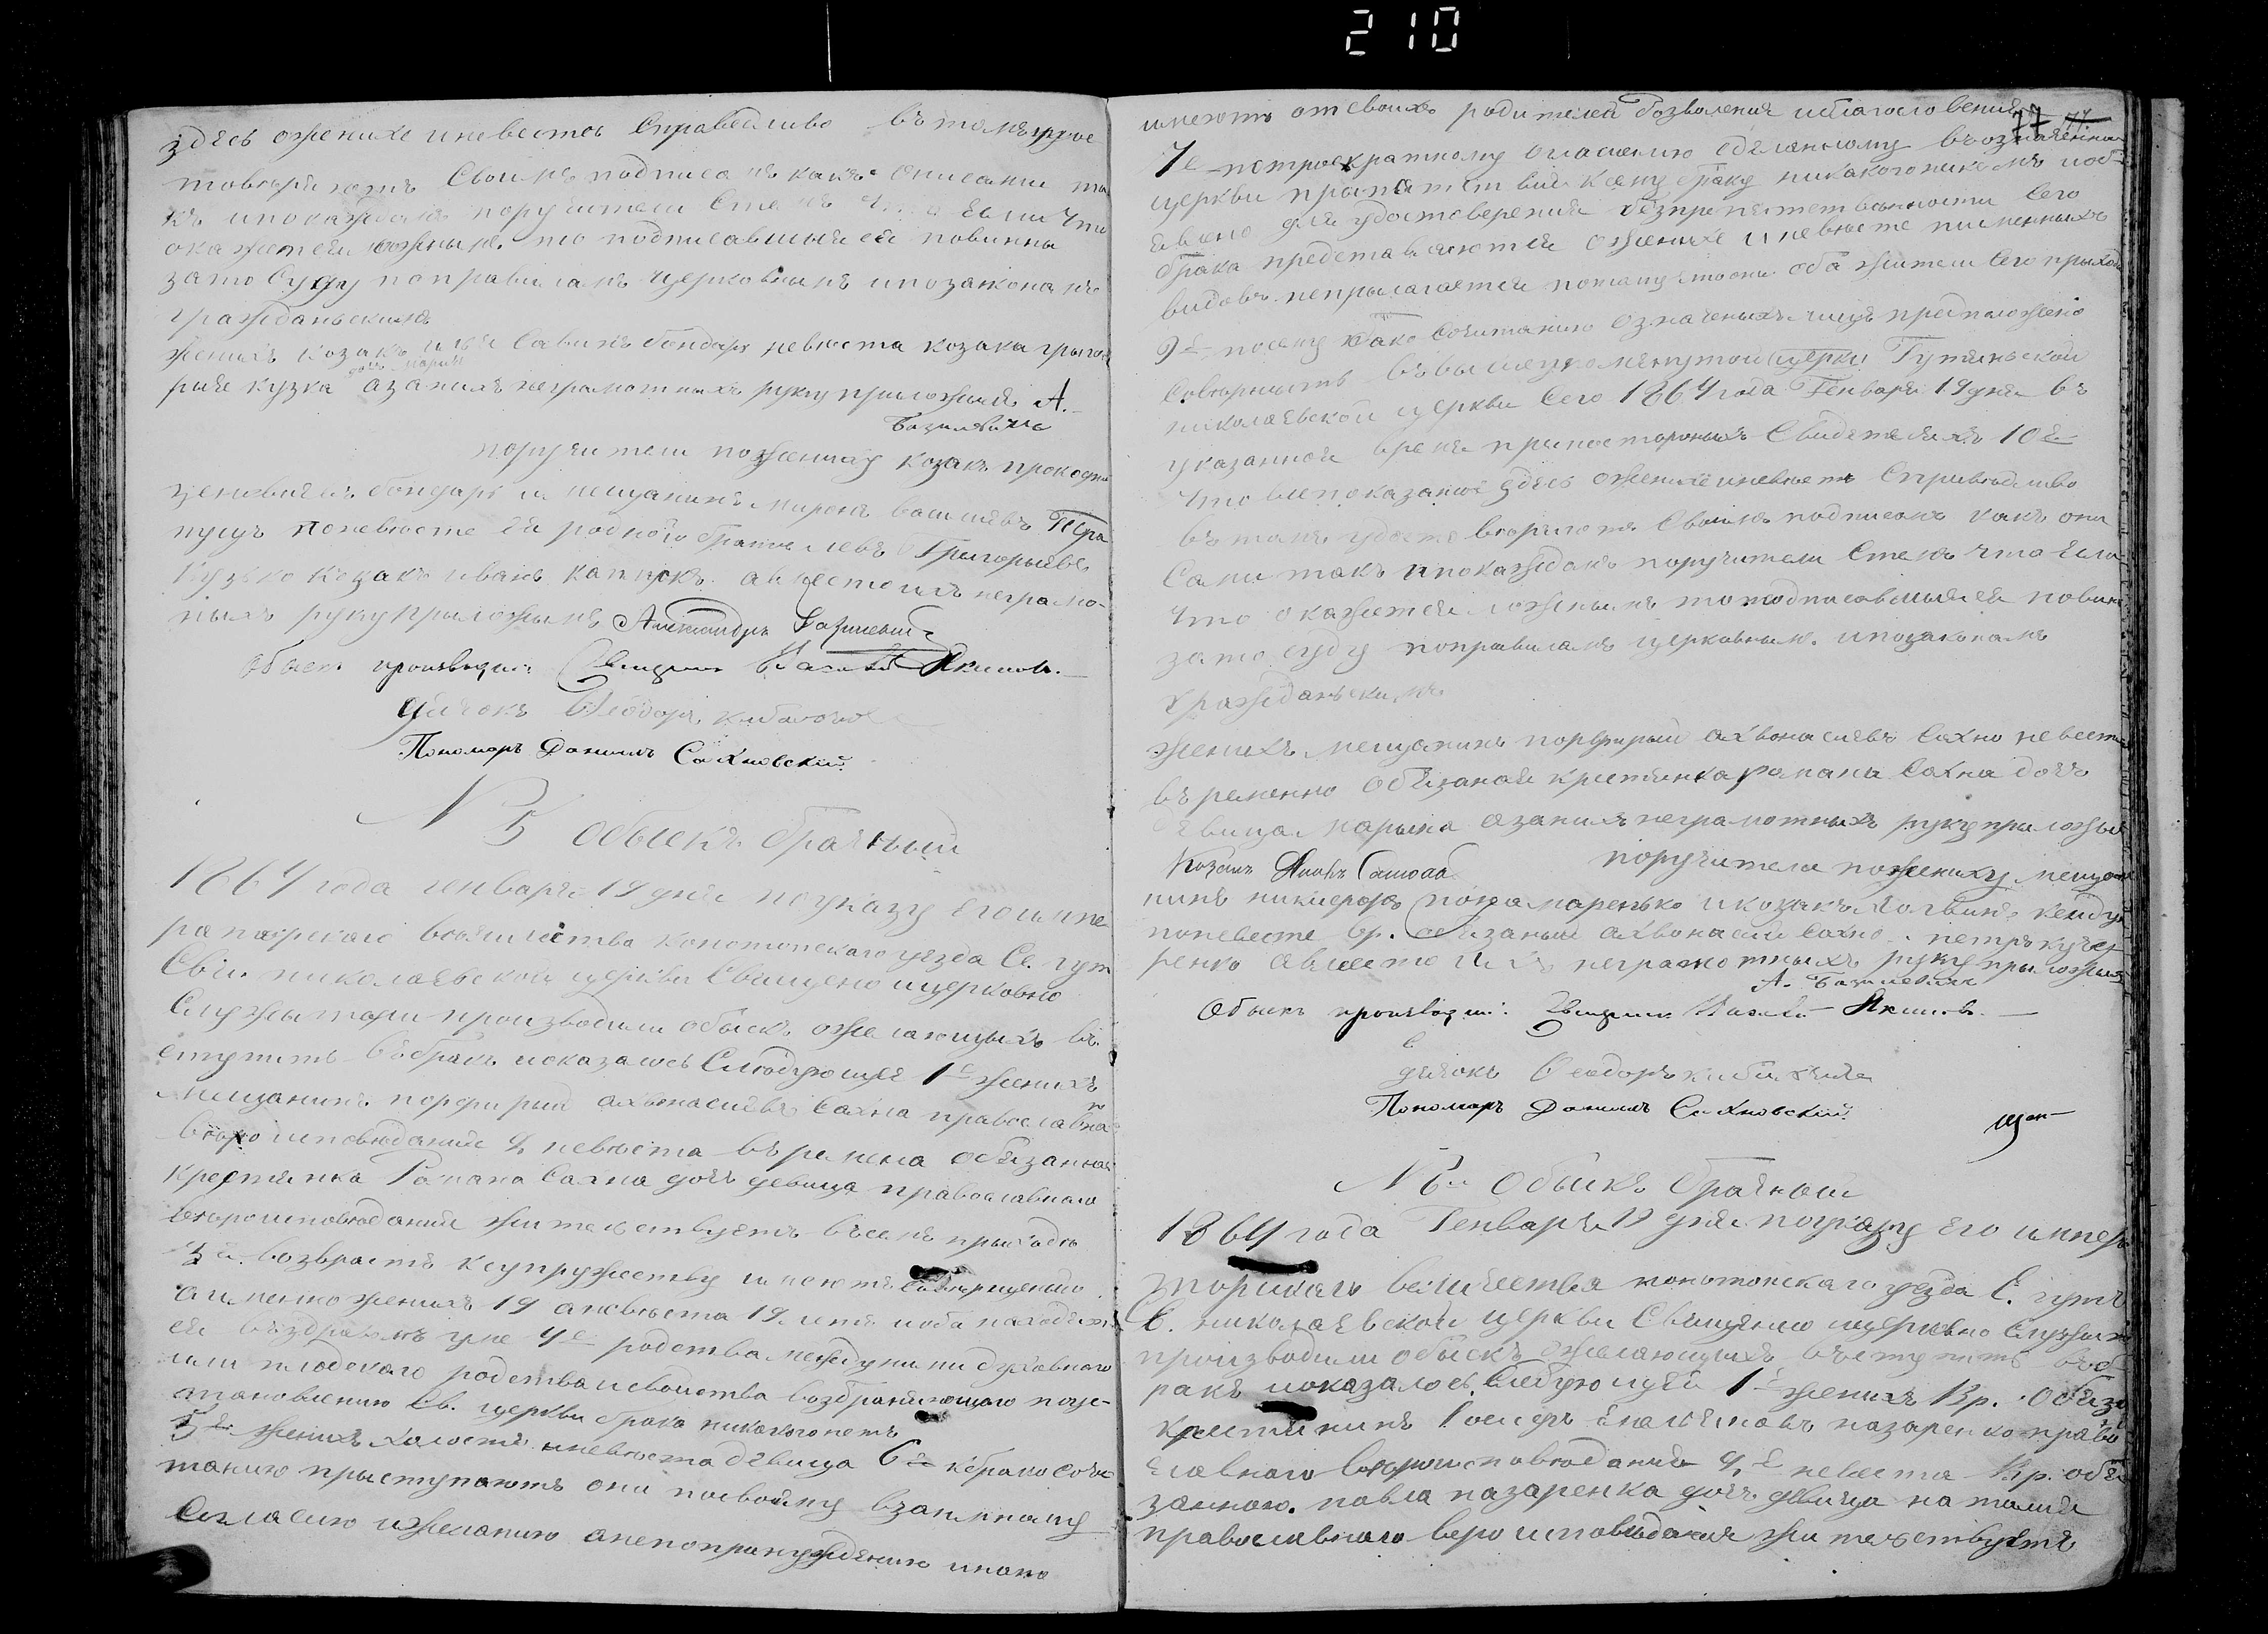 210
здѣсь оженихѣ иневестѣ Справедливо въ томъ удос
товѣряютъ Своимъ подписомъ какъ они сами та
къ ипокаждомъ поручители Стемъ что Если что
окажется ложнымъ то подписавшыяся повинны
зато Суду поправиламъ церковнымъ ипозаконамъ
гражданьскимъ
женихъ козакъ илья Савинъ бондарь невѣста козака григо
рия кузка дочь мария азанихъ неграмотныхъ руку приложилъ А.
Базилевичъ
поручители поженихѣ козакъ прокофий
бондарь и мещанинъ миронъ василиевъ
поневѣсте Ея родной братъ левъ Григорыевъ
Кузько козакъ иванъ авместо ихъ неграмо-
ныхъ руку приложылъ Александръ Базилевичъ
Обыскъ производили: Священникъ Василий Якимов.
дячокъ Феодоръ
Пономарь Даниилъ Сахновский
N 5 обыскъ брачный
1864 года генваря 19 дня поуказу Его импе
раторскаго величества конотопскаго уезда С. гут
Свя. николаевской церкви Священо ицерковно
Служытели производили обыскъ ожелающыхъ въ
ступить въ бракъ иоказалось Слѣдующее 1е женихъ
мещанинъ порфирый ахванасиевъ Сахна православна
го вѣроисповѣдания 2, невѣста въременно обязанная
крестянка Романа Сахна дочь девица православнаго
вѣроисповѣдания жительствуетъ въсемъ приходѣ
3е. возврастъ ксупружеству имеютъ Совершенный
аименно женихъ 19 аневѣста 19 летъ иоба находят
ся въздравомъ уме 4е родства междуними духовнаго
или плодскаго родства исвойства возбраняющаго поус-
тановлению Св. церкви брака никакого нетъ
5е женихъ холостъ иневѣста девица 6е кбракосоче
танию приступаютъ они посвоему взаимному
Согласию ижеланию анепопринуждению имако
77
имеютъ отсвоихъ родителей дозволения иблагословения
7е потроекратному огласению сделанному въозначенной
церкви препятствия ксему браку никакого никемъ необ-
явлено 8е для удостоверения безпрепятственности Сего
брака представляются оженихе иневесте писменныхъ
видовъ неприлагается потому что они оба жители Сего приход
9е посему бракосочитанию означеныхъ лицъ предположено
Совершить въвышеупомянутой церкви Гутянской
николаевской церкви Сего 1864 года Генваря 19 дня въ
указанное время припостороныхъ Свидетеляхъ 10е
что все показанное здесь оженихѣ иневестѣ Справедливо
въ томъ удостовѣряютъ Своимъ подписомъ какъ они
Сами такъ ипокаждомъ поручители Стемъ что Если
что окажется ложнымъ то подписавшыяся повины
зато суду поправиламъ церковным. ипозаконамъ
гражданьскимъ
женихъ мещанинъ порфирый ахванасиевъ Сахно невеста
въременно обязаной крестянка романа Сахна дочь
девица марына азанихъ неграмотныхъ руку приложыл
Козакъ поручители поженихѣ меща
нинъ никифоръ пономаренько икозакъ
поневесте вр. обязаный ахванасий Сахно. петръ кучер
ренко авместо ихъ неграмотныхъ руку приложылъ
А. Базилевичъ
Обыскъ производили: Священникъ Василий Якимов.
дячокъ Феодоръ
Пономарь Даниилъ Сахновский
N 6й Обыскъ брачный
1864 года Генваря 19 дня поуказу Его импера
торскаго величества конотопскаго уезда С. гут
С. николаевской церкви Священо ицерковно Служыте
производили обыскъ ожелающыхъ въступить въб
ракъ иоказалось Следующее 1е женихъ Вр. Обяза
крестянинъ назаренко право
славнаго вѣроисповѣдания 2,е невеста Вр. обя
занною. павла назаренка дочь девица наталия
православнаго вероисповѣдания жительствуетъ